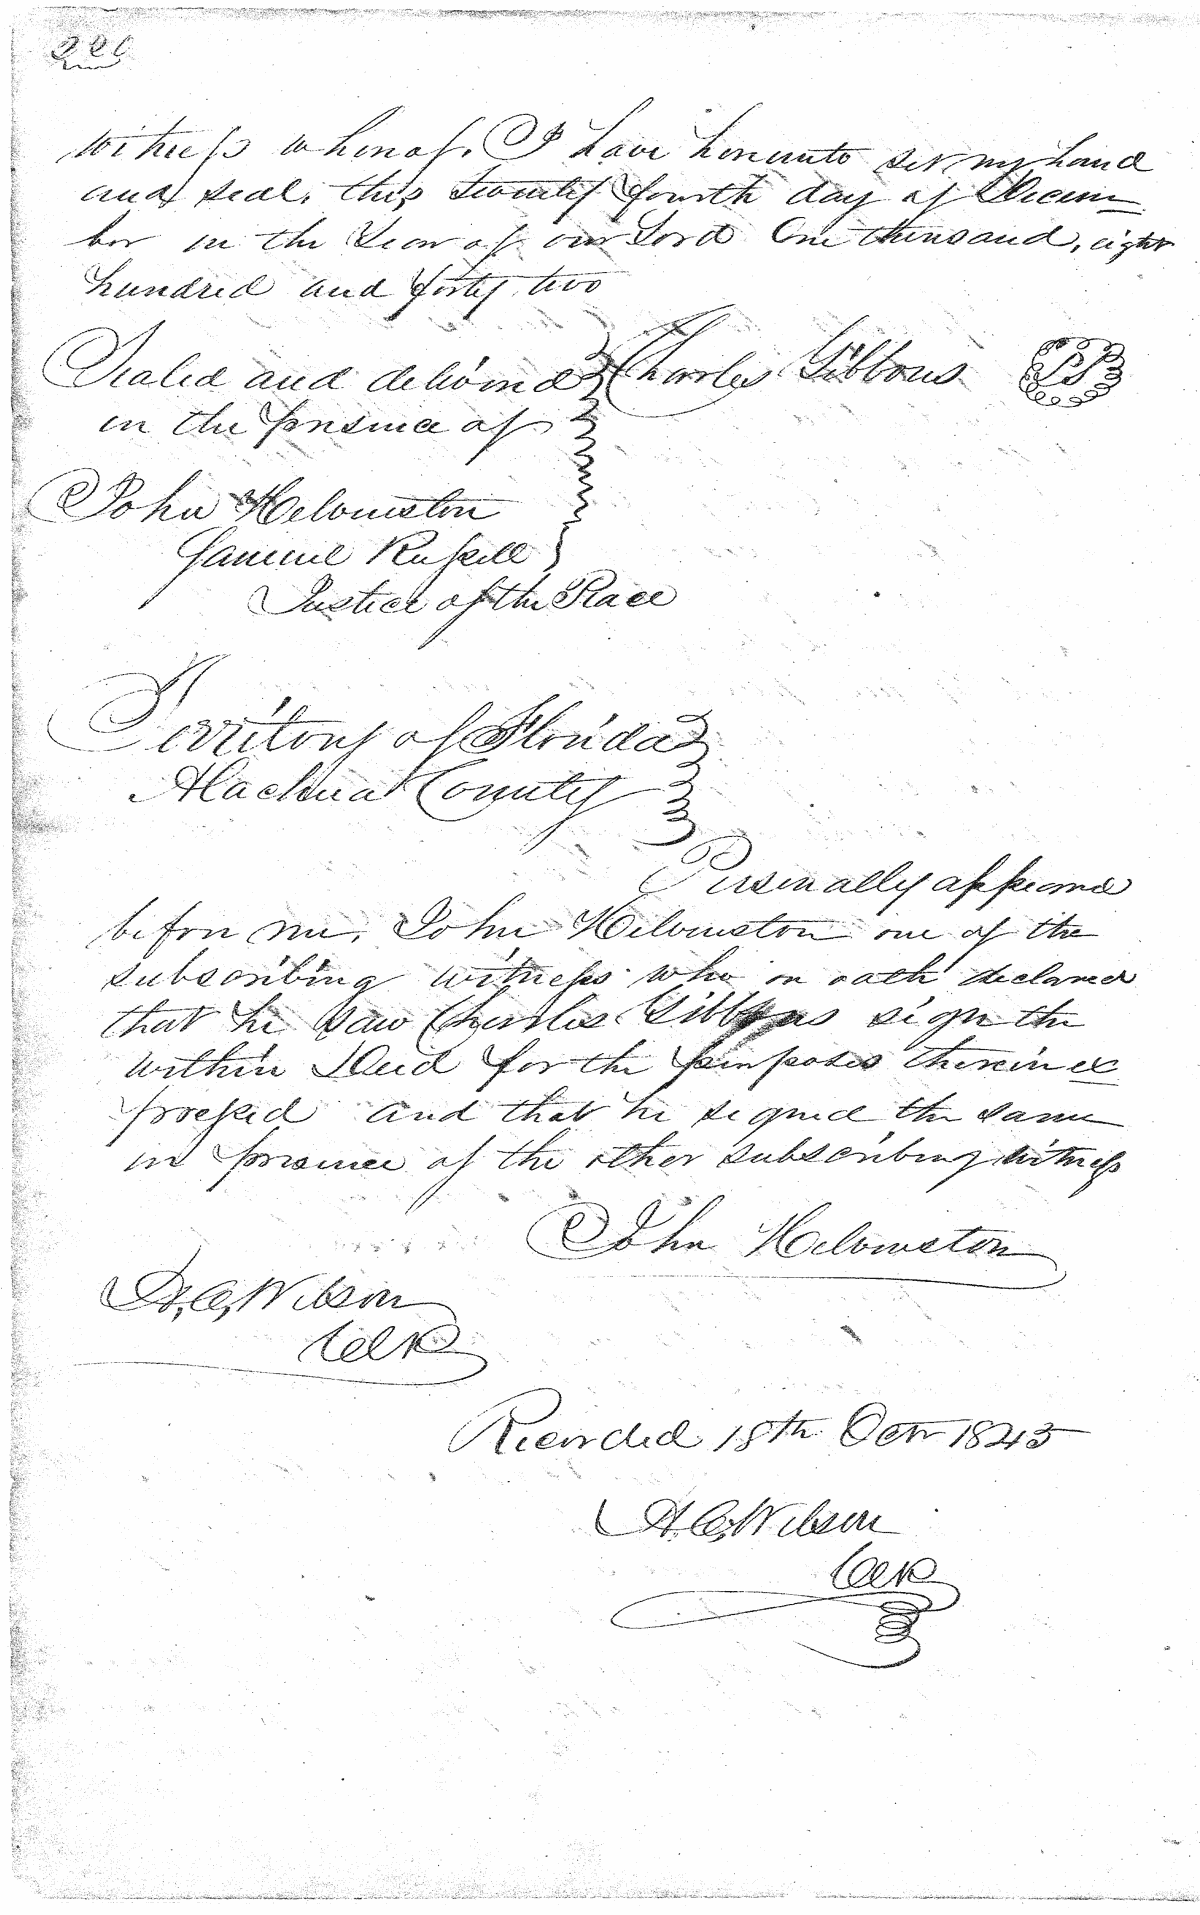 220
witness whereof, I have hereunto set my hand
and seal, this twenty fourth day of Decem
ber in the Year of our Lord One thousand, eight
hundred and forty two
Sealed and delivered Charles Gibbons
in the presence of
John Helveniston
Samuel Russell
Justice of the Peace
Territory of Florida
Alachua County
Personally appeared
before me, John Helveniston one of the
subscribing witness who on oath declared
that he saw Charles Gibbons sign the
within Deed for the purposes therein ex
pressed and that he signed the same
in presence of the other subscribing witness
John Helveniston
H. C. Wilson
Clk
Recorded 18th Octr 1843
H. C. Wilson
Clk